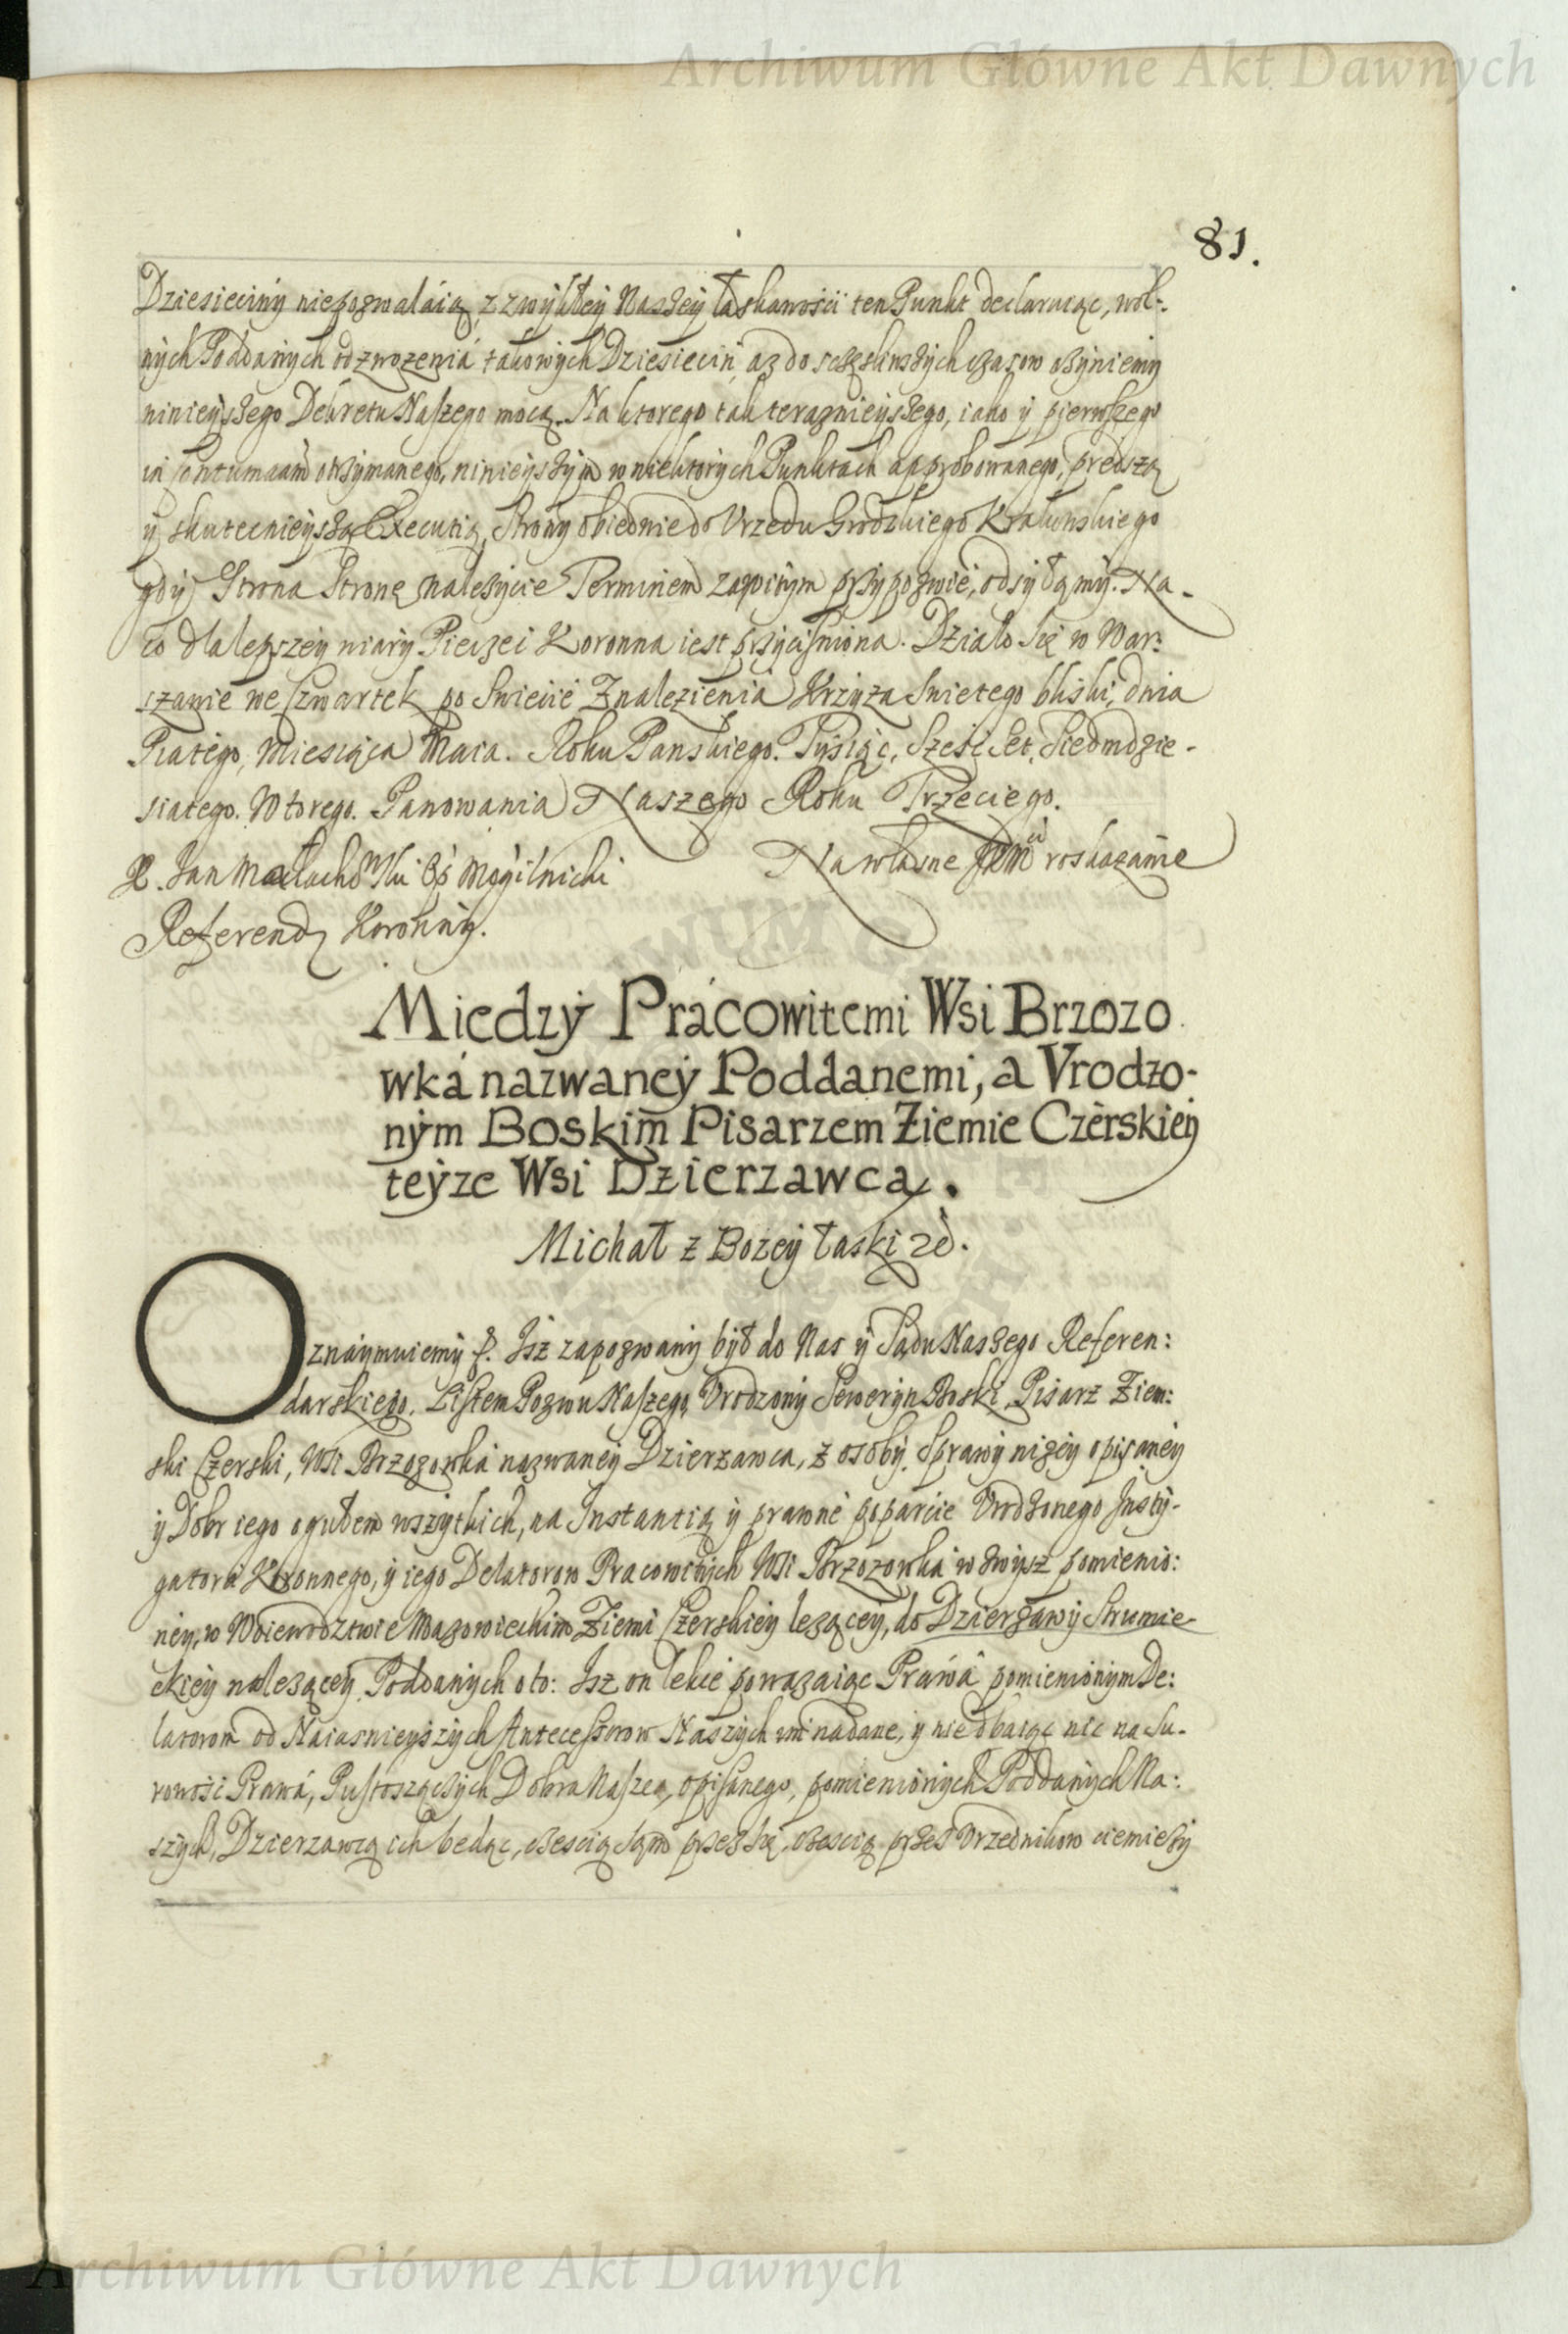 Archiwum Główne Akt Dawnych
81.
Dziesieciny niepozwaláią, z zwykłey Naszey łaskawości ten Punkt declaruiąc, wol-
nych Poddanych od zwozenia takowych Dziesiecin, az do sczęsliwszych czasow czyniemy
ninieyszego Dekretu Naszego mocą. Na ktorego tak terazniejszego, iako y pierwszego
in contumaciam otrzymanego, ninieyszym w niektorych Punktach approbowanego, predszą
y skutecznieyszą Executią, Strony obiedwie do Vrzedu Grodzkiego Krakowskiego
gdy Strona Stronę nalezycie Terminem zawitym przypozwie, odsyłamy. Na-
co dla lepszey wiary Pieczęć Koronna iest przyciśniona. Działo się w War:
szawie we Czwartek po Swiecie Znalezienia Krzyza Swietego bliski, dnia
Piatego, Miesiąca Maia. Roku Panskiego. Tysiąc, Sześć Set, Siedmdzie-
siatego. Wtorego. Panowania Naszego Roku Trzeciego.
X. Jan Małachowski Op Mogilnicki
Na własne roskazanie
Referend Koronny.
Miedzy Prácowitemi Wsi Brzozo
wká nazwaney Poddanemi, a Vrodzo-
nym Boskim Pisarzem Ziemie Czerskiey
teyze Wsi Dzierzawcą.
Michał z Bozey łaski zć.
Oznáymuiemy p. Isz zapozwany był do Nas y Sądu Naszego Referen:
darskiego. Listem Pozwu Naszego, Vrodzony Seweryn Boski, Pisarz Ziem:
ski Czerski, Wsi Brzozowka nazwaney Dzierzawca, z osoby, Sprawy nizey opisaney
y Dobr iego ogułem wszytkich, na Instantią y prawne poparcie Vrodzonego Insty-
gatora Koronnego, y iego Delatorow Pracowitych Wsi Brzozowka w zwysz pomienio:
ney, w Woiewodztwie Mazowieckim Ziemi Czerskiey lezącey, do Dzierzawy Strumie-
ckiey nalezącey Poddanych o to: Isz on lekce powazaiąc Prawá pomienionym De:
latorom od Naiasnieyszych Antecessorow Naszych im nadane, y nie dbaiąc nic na Su-
rowość Prawá, Pustoszących Dobra Nasze, opisanego, pomienionych Poddanych Na:
szych, Dzierzawcą ich bedąc, czescią sąm przez się, czescią przez Vrzednikow ciemięzy
Archiwum Główne Akt Dawnych